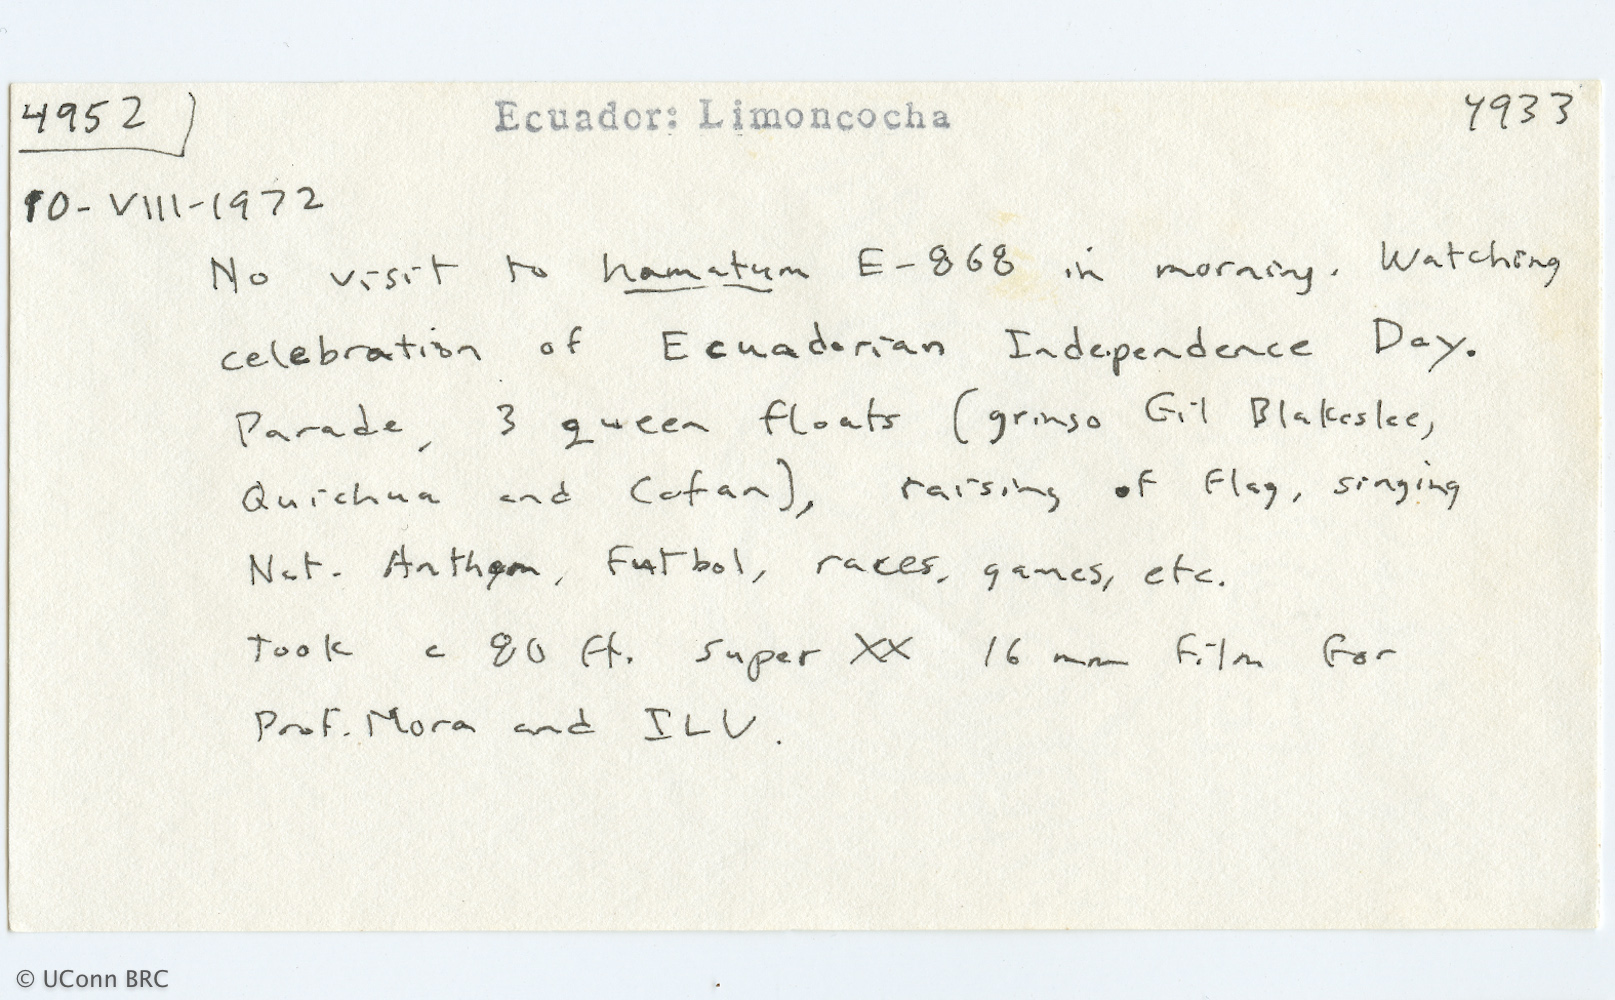 4952 Ecuador: Limoncocha 4933
10-VIII-1972
No visit to hamatum E-868 in morning. Watching
celebration of Ecuadorian Independence Day.
Parade, 3 queen floats (gringo Gil Blakeslee,
Quichua and Cofan), raising of flag, singing
Nat. Anthem, Futbol, races, games, etc.
Took c 80 ft. super XX 16 mm film for
Prof. Mora and ILV.
© UConn BRC